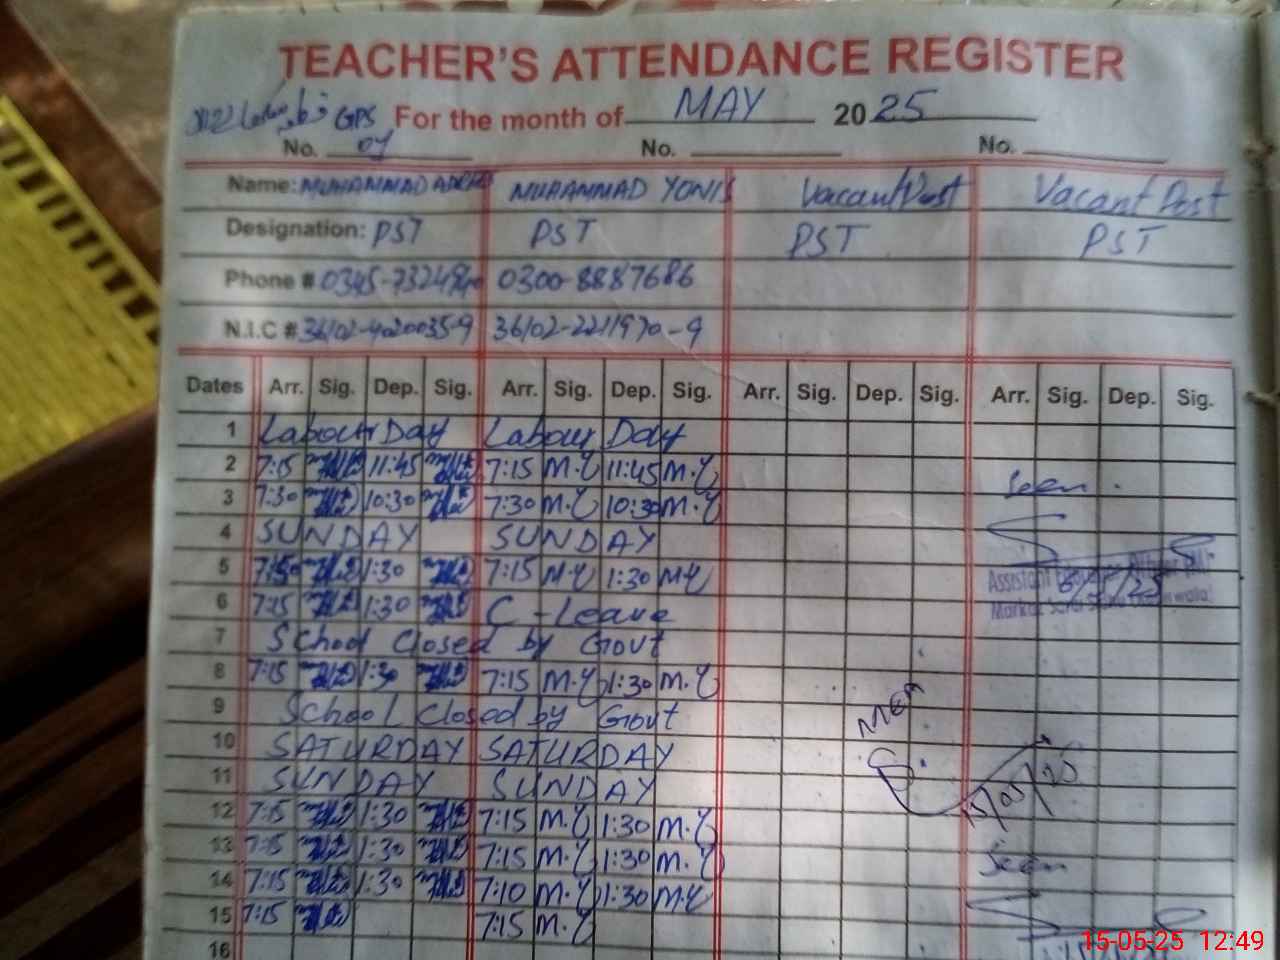 TEACHER'S ATTENDANCE REGISTER
GPS For the month of MAY 2025
No. 04 No. No.
Name: MUHAMMAD MUHAMMAD YONIS Vacant Post Vacant Post
Designation: PST PST PST PST
Phone # 0300-8887686
N.I.C #
Dates Arr. Sig. Dep. Sig. Arr. Sig. Dep. Sig. Arr. Sig. Dep. Sig. Arr. Sig. Dep. Sig.
1 Labour Day Labour Day
2 7:15 11:45 7:15 M.Y 11:45 M.Y Seen.
3 7:30 10:30 7:30 M.Y 10:30 M.Y
4 SUNDAY SUNDAY
5 1:30 7:15 M.Y 1:30 M.Y Assistant
6 7:15 1:30 C-Leave Markaz
7 School Closed by Govt
8 7:15 1:30 7:15 M.Y 1:30 M.Y
9 School Closed by Govt MEA
10 SATURDAY SATURDAY
11 SUNDAY SUNDAY 15/05/25
12 7:15 1:30 7:15 M.Y 1:30 M.Y
13 7:15 1:30 7:15 M.Y 1:30 M.Y Seen
14 7:15 1:30 7:10 M.Y 1:30 M.Y
15 7:15 7:15 M.Y
16
15-05-25 12:49